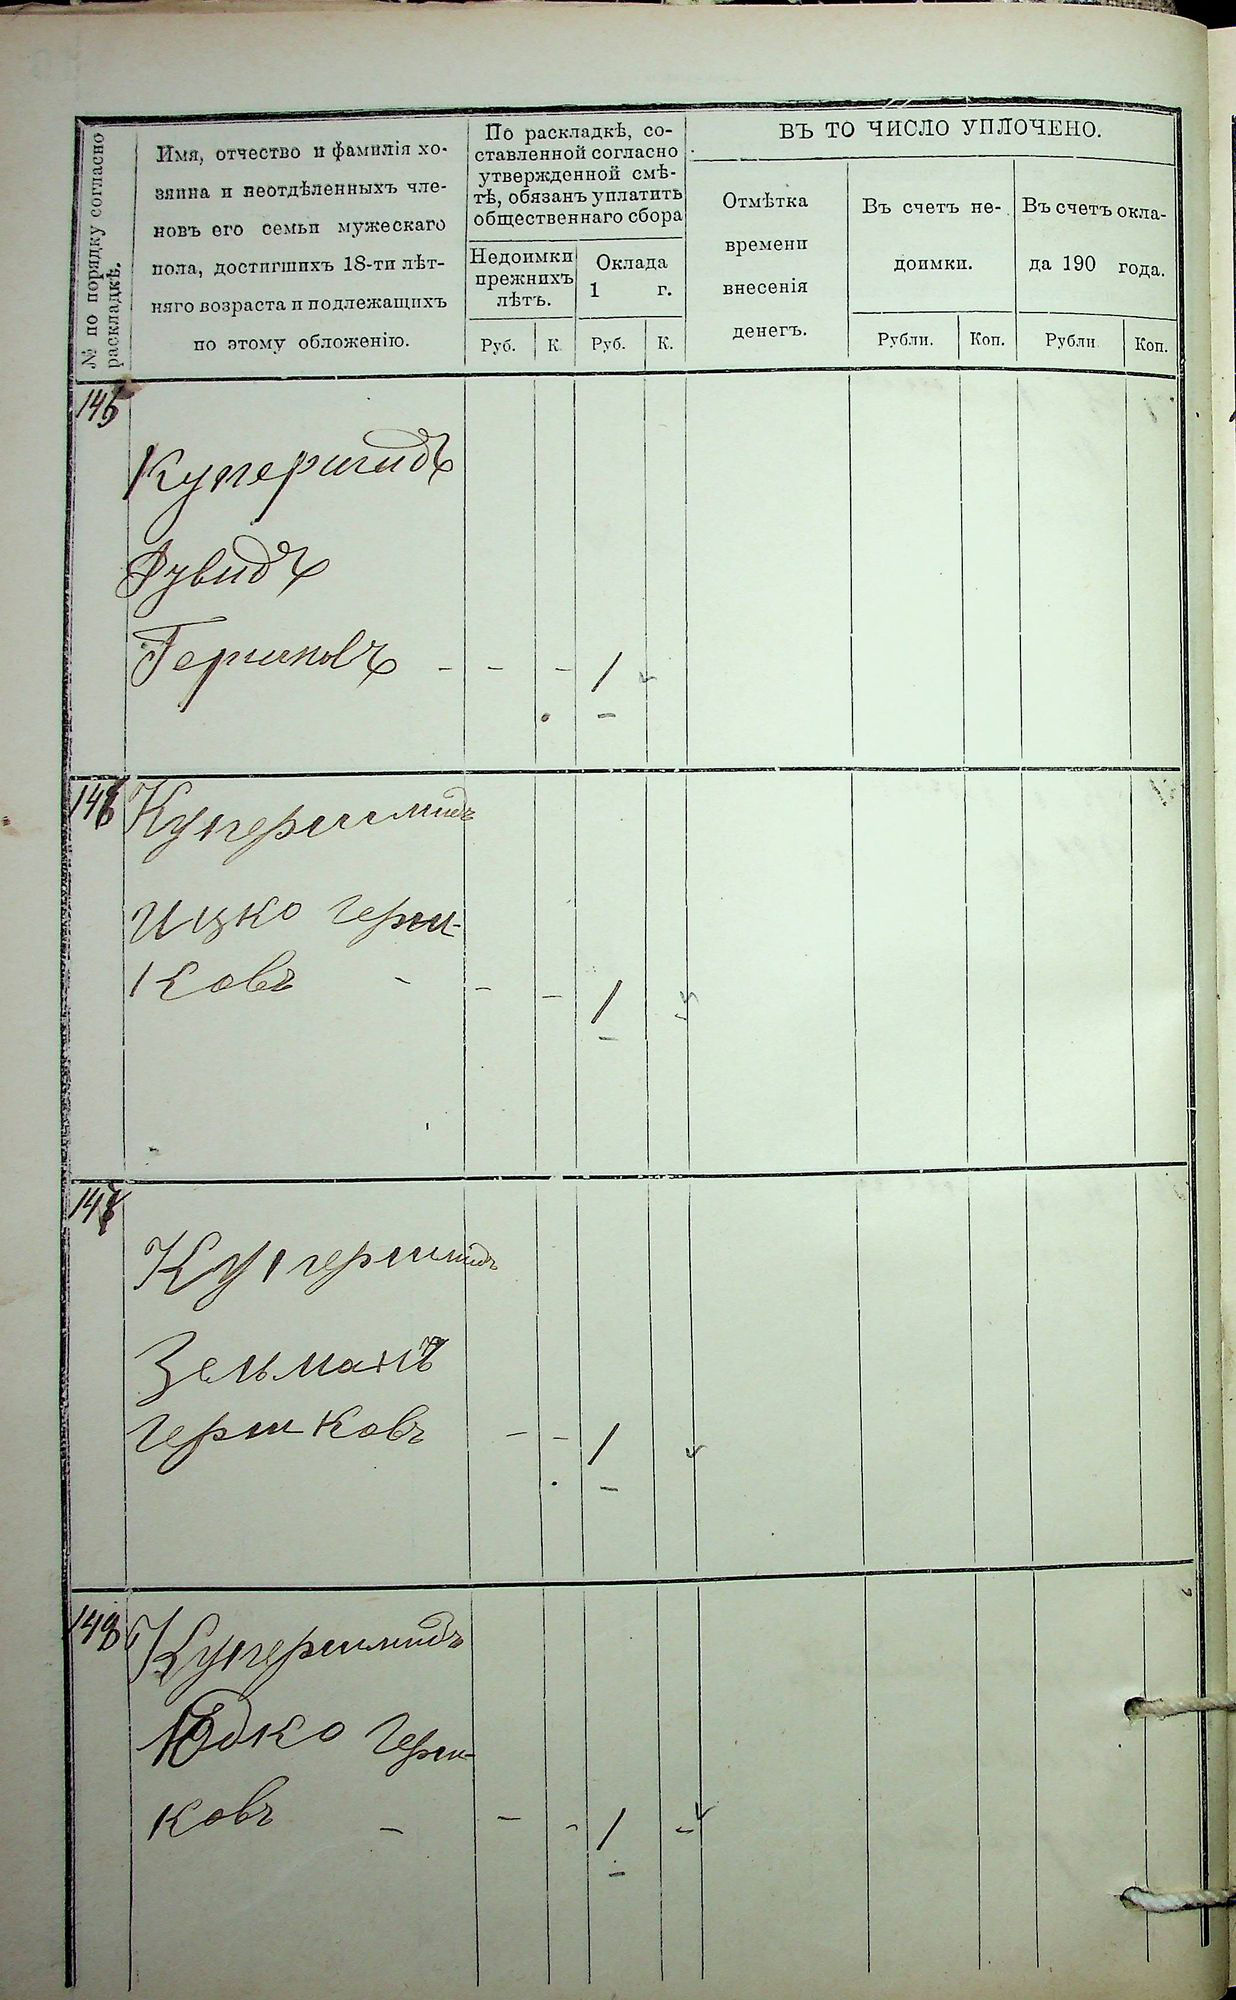 № по порядку согласно
раскладкѣ.
Имя, отчество и фамилія хо-
зяина и неотдѣленныхъ чле-
новъ его семьи мужескаго
пола, достигшихъ 18-ти лѣт-
няго возраста и подлежащихъ
по этому обложенію.
По раскладкѣ, со-
ставленной согласно
утвержденной смѣ-
тѣ, обязанъ уплатить
общественнаго сбора
Недоимки
прежнихъ
лѣтъ.
Руб. К.
Оклада
1 г.
Руб. К.
ВЪ ТО ЧИСЛО УПЛОЧЕНО.
Отмѣтка
времени
внесенія
денегъ.
Въ счетъ не-
доимки.
Рубли. Коп.
Въ счетъ окла-
да 190 года.
Рубли Коп.
145
Купершмидъ
Рувидъ
Гершковъ - - - 1
-
146
Купершмидъ
Ицко Герш-
ковъ - - - 1
-
147
Купершмидъ
Зельманъ
Гершковъ - - 1
-
148
Купершмидъ
Юдко Герш-
ковъ - - - 1 -
-